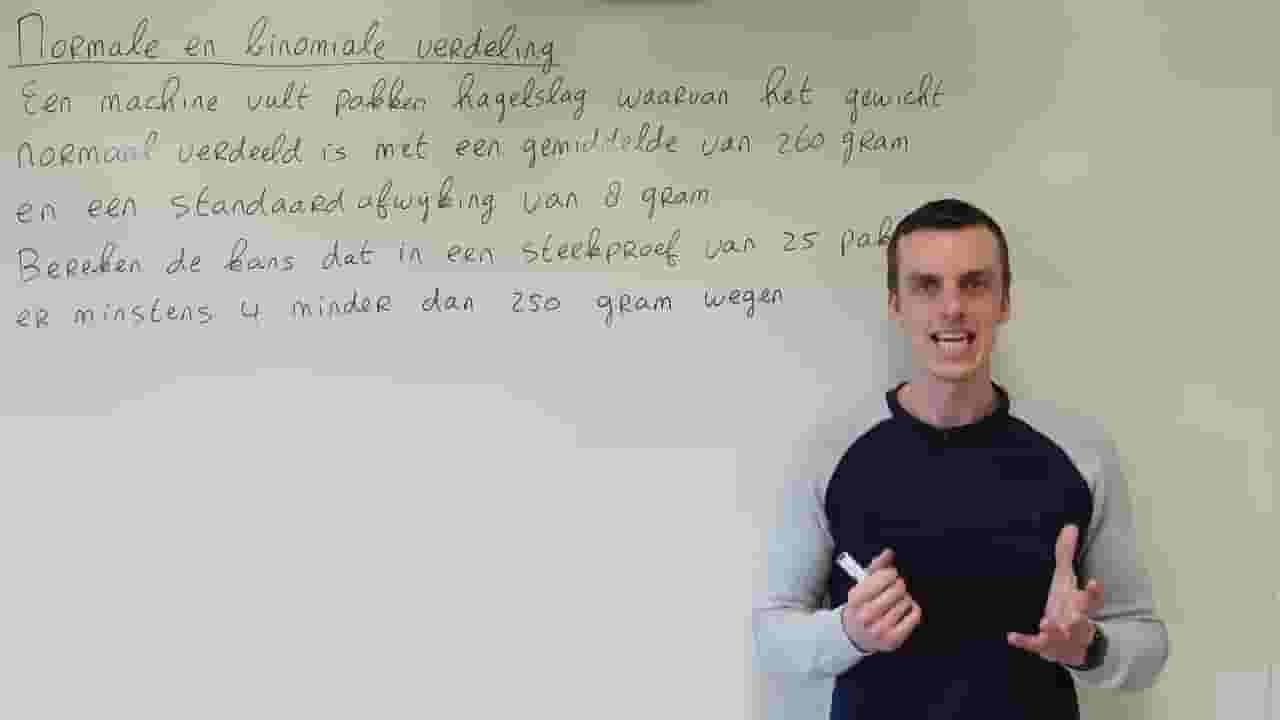 Normale en binomiale verdeling
Een machine vult pakken hagelslag waarvan het gewicht
normaal verdeeld is met een gemiddelde van 260 gram
en een standaardafwijking van 8 gram
Bereken de kans dat in een steekproef van 25
er minstens 4 minder dan 250 gram wegen